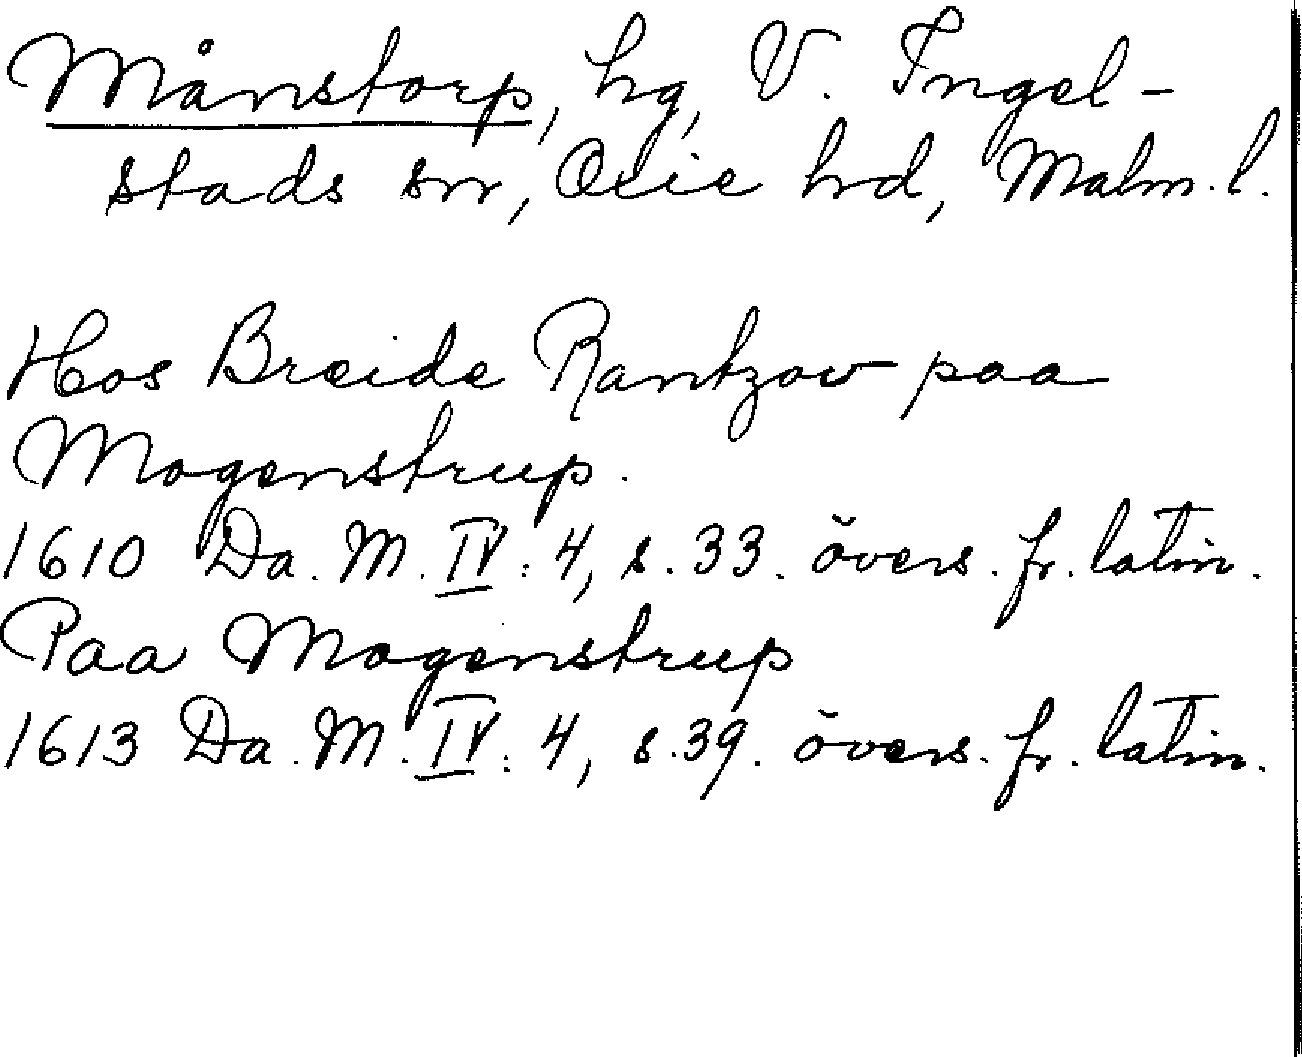 Månstorp, hg, V. Ingel-
stads sn, Oxie hrd, Malm. l.
Hos Breide Rantzow paa
Mogenstrup.
1610 Da. M. IV: 4, s. 33. övers. fr. latin.
Paa Mogenstrup
1613 Da. M. IV: 4, s. 39. övers. fr. latin.